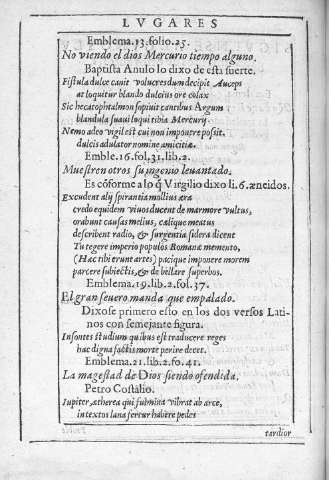 LVGARES
Emblema.13.folio.25.
No viendo el dios Mercurio tiempo alguno.
Baptista Anulo lo dixo de esta suerte.
Fistula dulce canit volucres dum decipit Auceps
at loquitur blando dulcius ore colax
Sic hecatophtalmon sopiuit cantibus Argum
blandula suaui loqui tibia Mercurÿ
Nemo adeo vigil est cui non imponere possit.
dulcis adulator nomine amicitiæ.
Emble.16.fol.31.lib.2.
Muestren otros su ingenio leuantado.
Es cõforme a lo q̃ Virgilio dixo li.6.æneidos.
Excudent alij spirantia mollius æra
credo equidem viuos ducent de marmore vultus,
orabunt causas melius, cælique meatus
describent radio, & surgentia sidera dicent
Tu regere imperio populos Romane memento,
(Hac tibi erunt artes) pacique imponere morem
parcere subiectis, & de bellare superbos.
Emblema.19.lib.2.fol.37.
El gran seuero manda que empalado.
Dixose primero esto en los dos versos Lati-
nos con semejante figura.
Insontes studium quibus est traducere reges
hac digna factis morte perire decet.
Emblema.21.lib.2.fo.41.
La magestad de Dios siendo ofendida.
Petro Costalio.
Iupiter, ætherea qui fulmina vibrat ab arce,
in textos lana fertur habere pedes
tardior